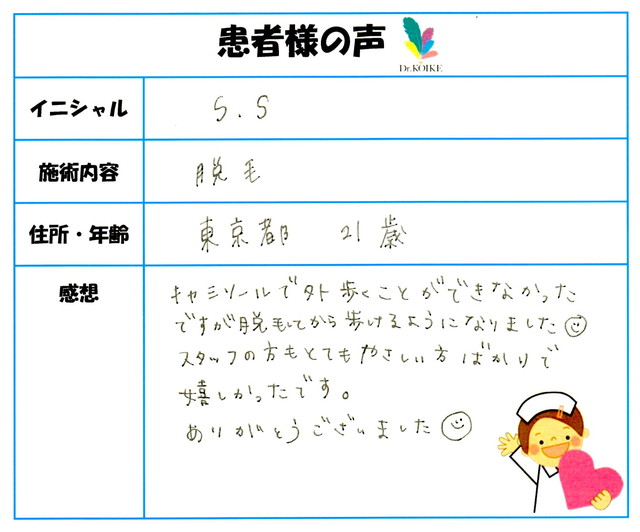 患者様の声
Dr.KOIKE
イニシャル S.S
施術内容 脱毛
住所・年齢 東京都 21歳
感想
キャミソールで外歩くことができなかった
ですが脱毛してから歩けるようになりました
スタッフの方もとてもやさしい方ばかりで
嬉しかったです。
ありがとうございました